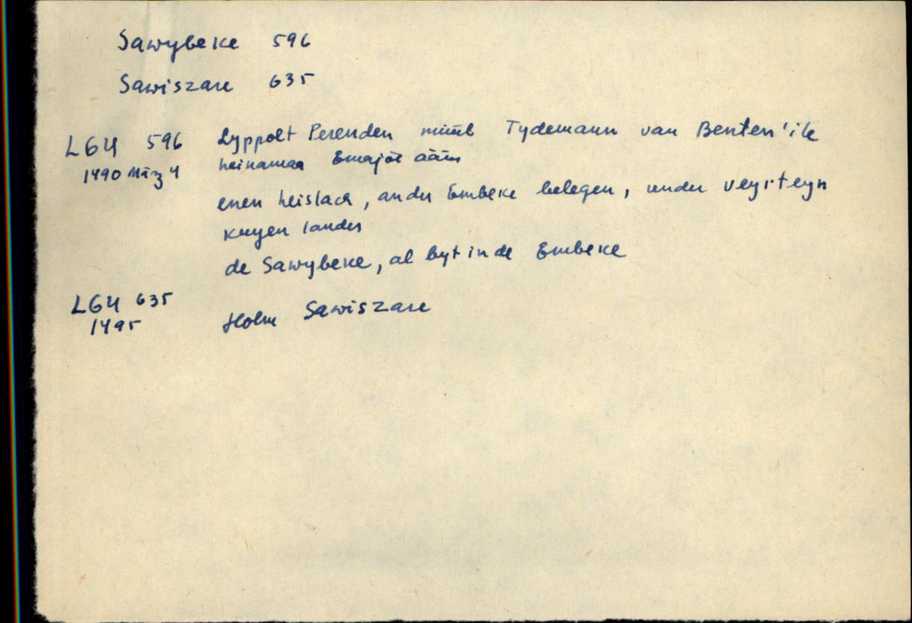 Sawybeke 596
Sawiszare 635
LGU 596 Lyppolt Perenden müüb Tydemann van Benten'ile
1490 März 4 heinamaa Emajõe ääres
enen heislach, ander Embeke belegen, under veyrteyn
kuyen landes
de Sawybeke, al byt in de Embeke
LGU 635
1495 Holm Sawiszare